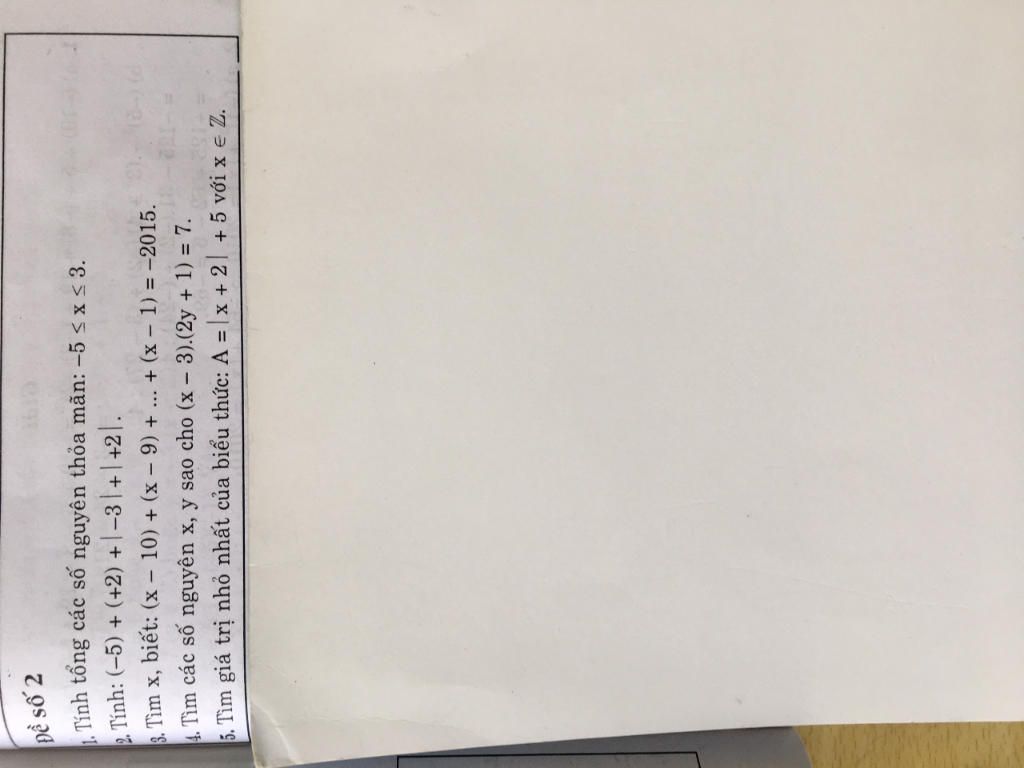 Đề số 2
1. Tính tổng các số nguyên thỏa mãn: −5 ≤ x ≤ 3.
2. Tính: (−5) + (+2) + | −3 | + | +2 |.
3. Tìm x, biết: (x − 10) + (x − 9) + ... + (x − 1) = −2015.
4. Tìm các số nguyên x, y sao cho (x − 3).(2y + 1) = 7.
5. Tìm giá trị nhỏ nhất của biểu thức: A = | x + 2 | + 5 với x ∈ ℤ.